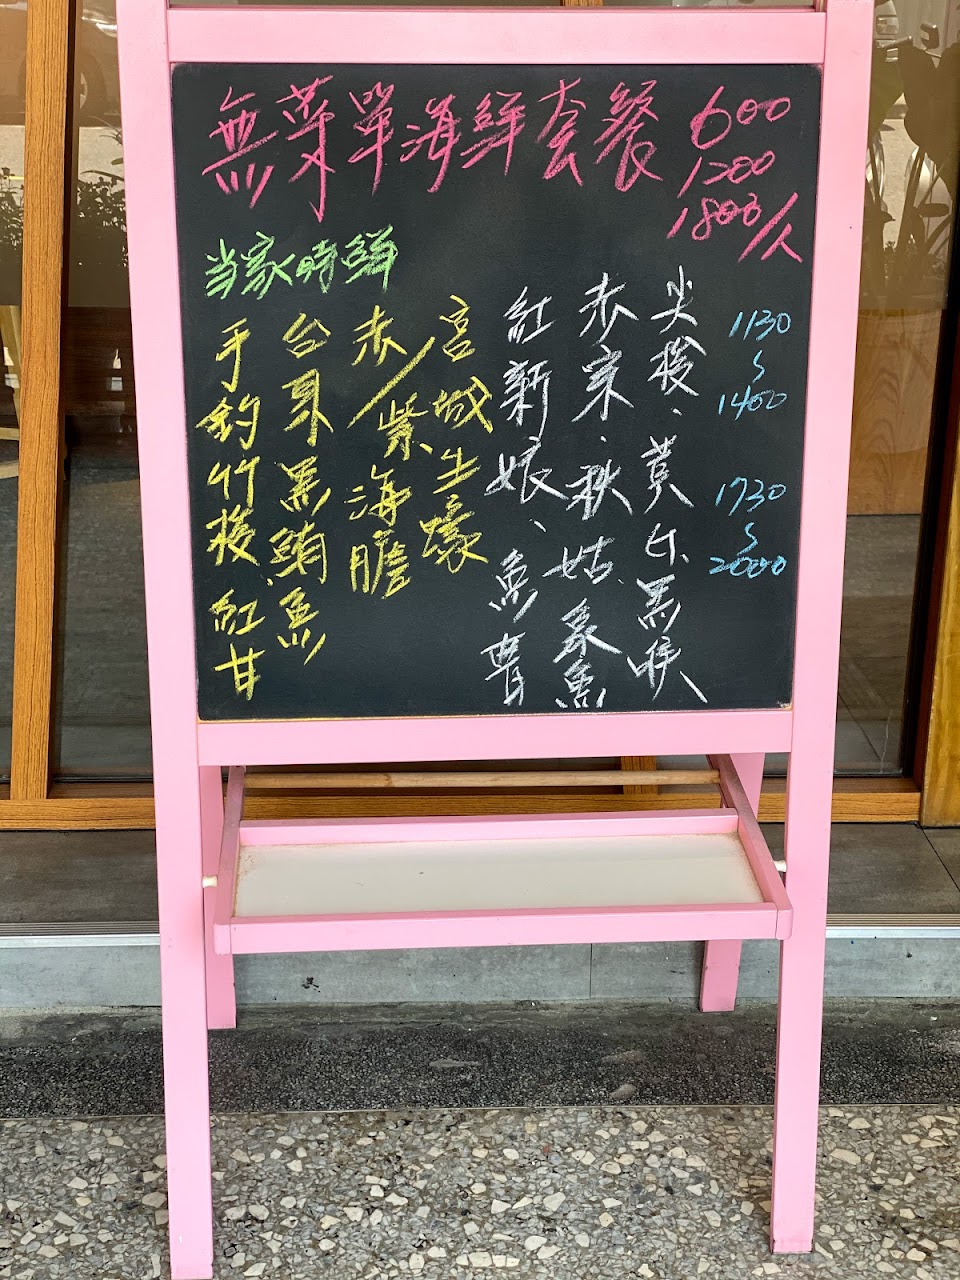 無菜單海鮮套餐 600
1200
1800/人
当家時鮮
手釣竹梭、紅甘
台東黑鮪魚
赤/紫、海膽
宮城生蠔
紅新娘、魚
赤宗、秋姑、象魚
尖梭、黃午、黑喉
1130
~
1400
1730
~
2000